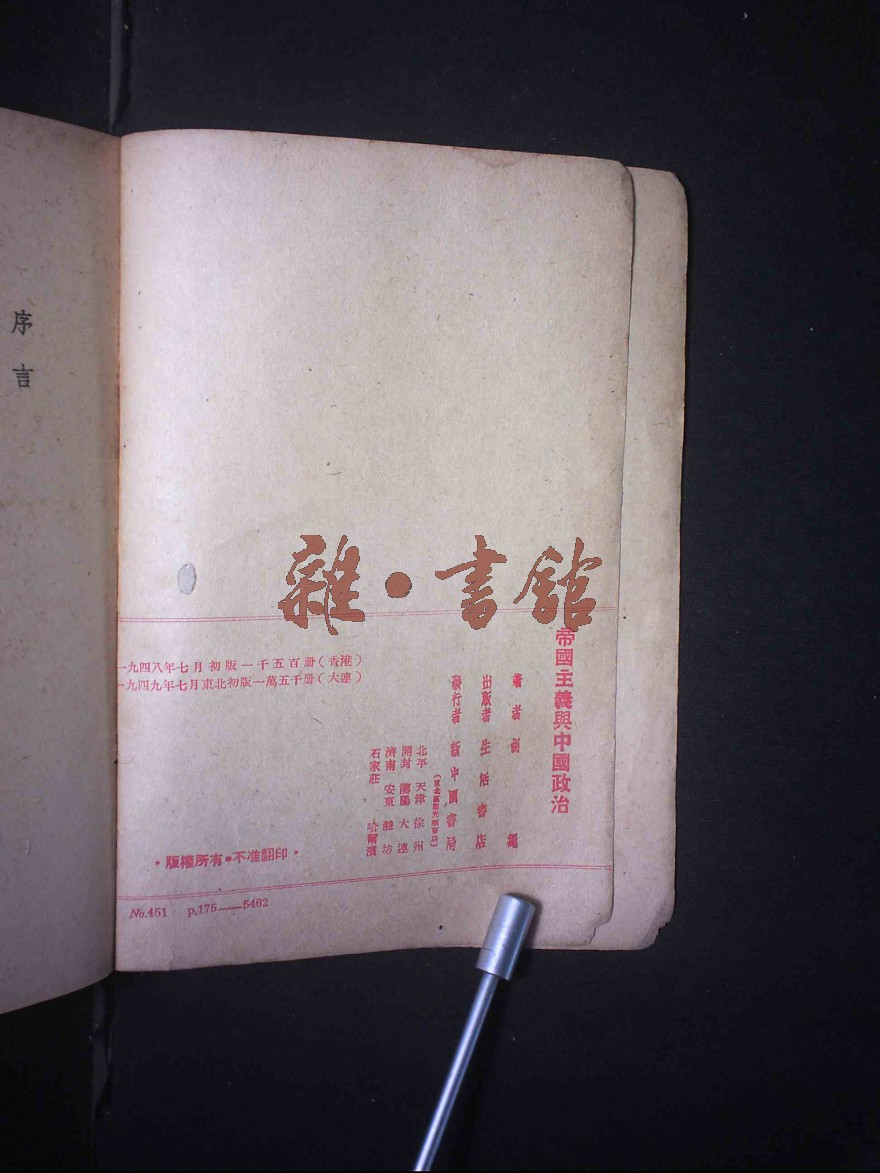 序言
雜·書館
帝國主義與中國政治
著者 胡繩
出版者 生活書店
發行者 新中國書局
北平 天津 徐州
開封 瀋陽 大連
濟南 安東 濰坊
石家莊 哈爾濱
一九四八年七月初版一千五百册(香港)
一九四九年七月東北初版一萬五千册(大連)
·版權所有·不准翻印·
No.451 p.175——5462